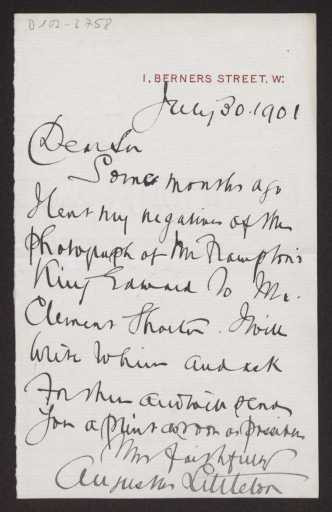 D102-3758
1, BERNERS STREET. W.
July 30. 1901
Dear Sir
Some months ago
I lent my negatives of the
Photograph of Mr Frampton's
King Edward to Mr.
Clement Shorter. I will
write to him and ask
for them and will send
you a print as soon as possible
Yrs faithfully
Augustus Littleton